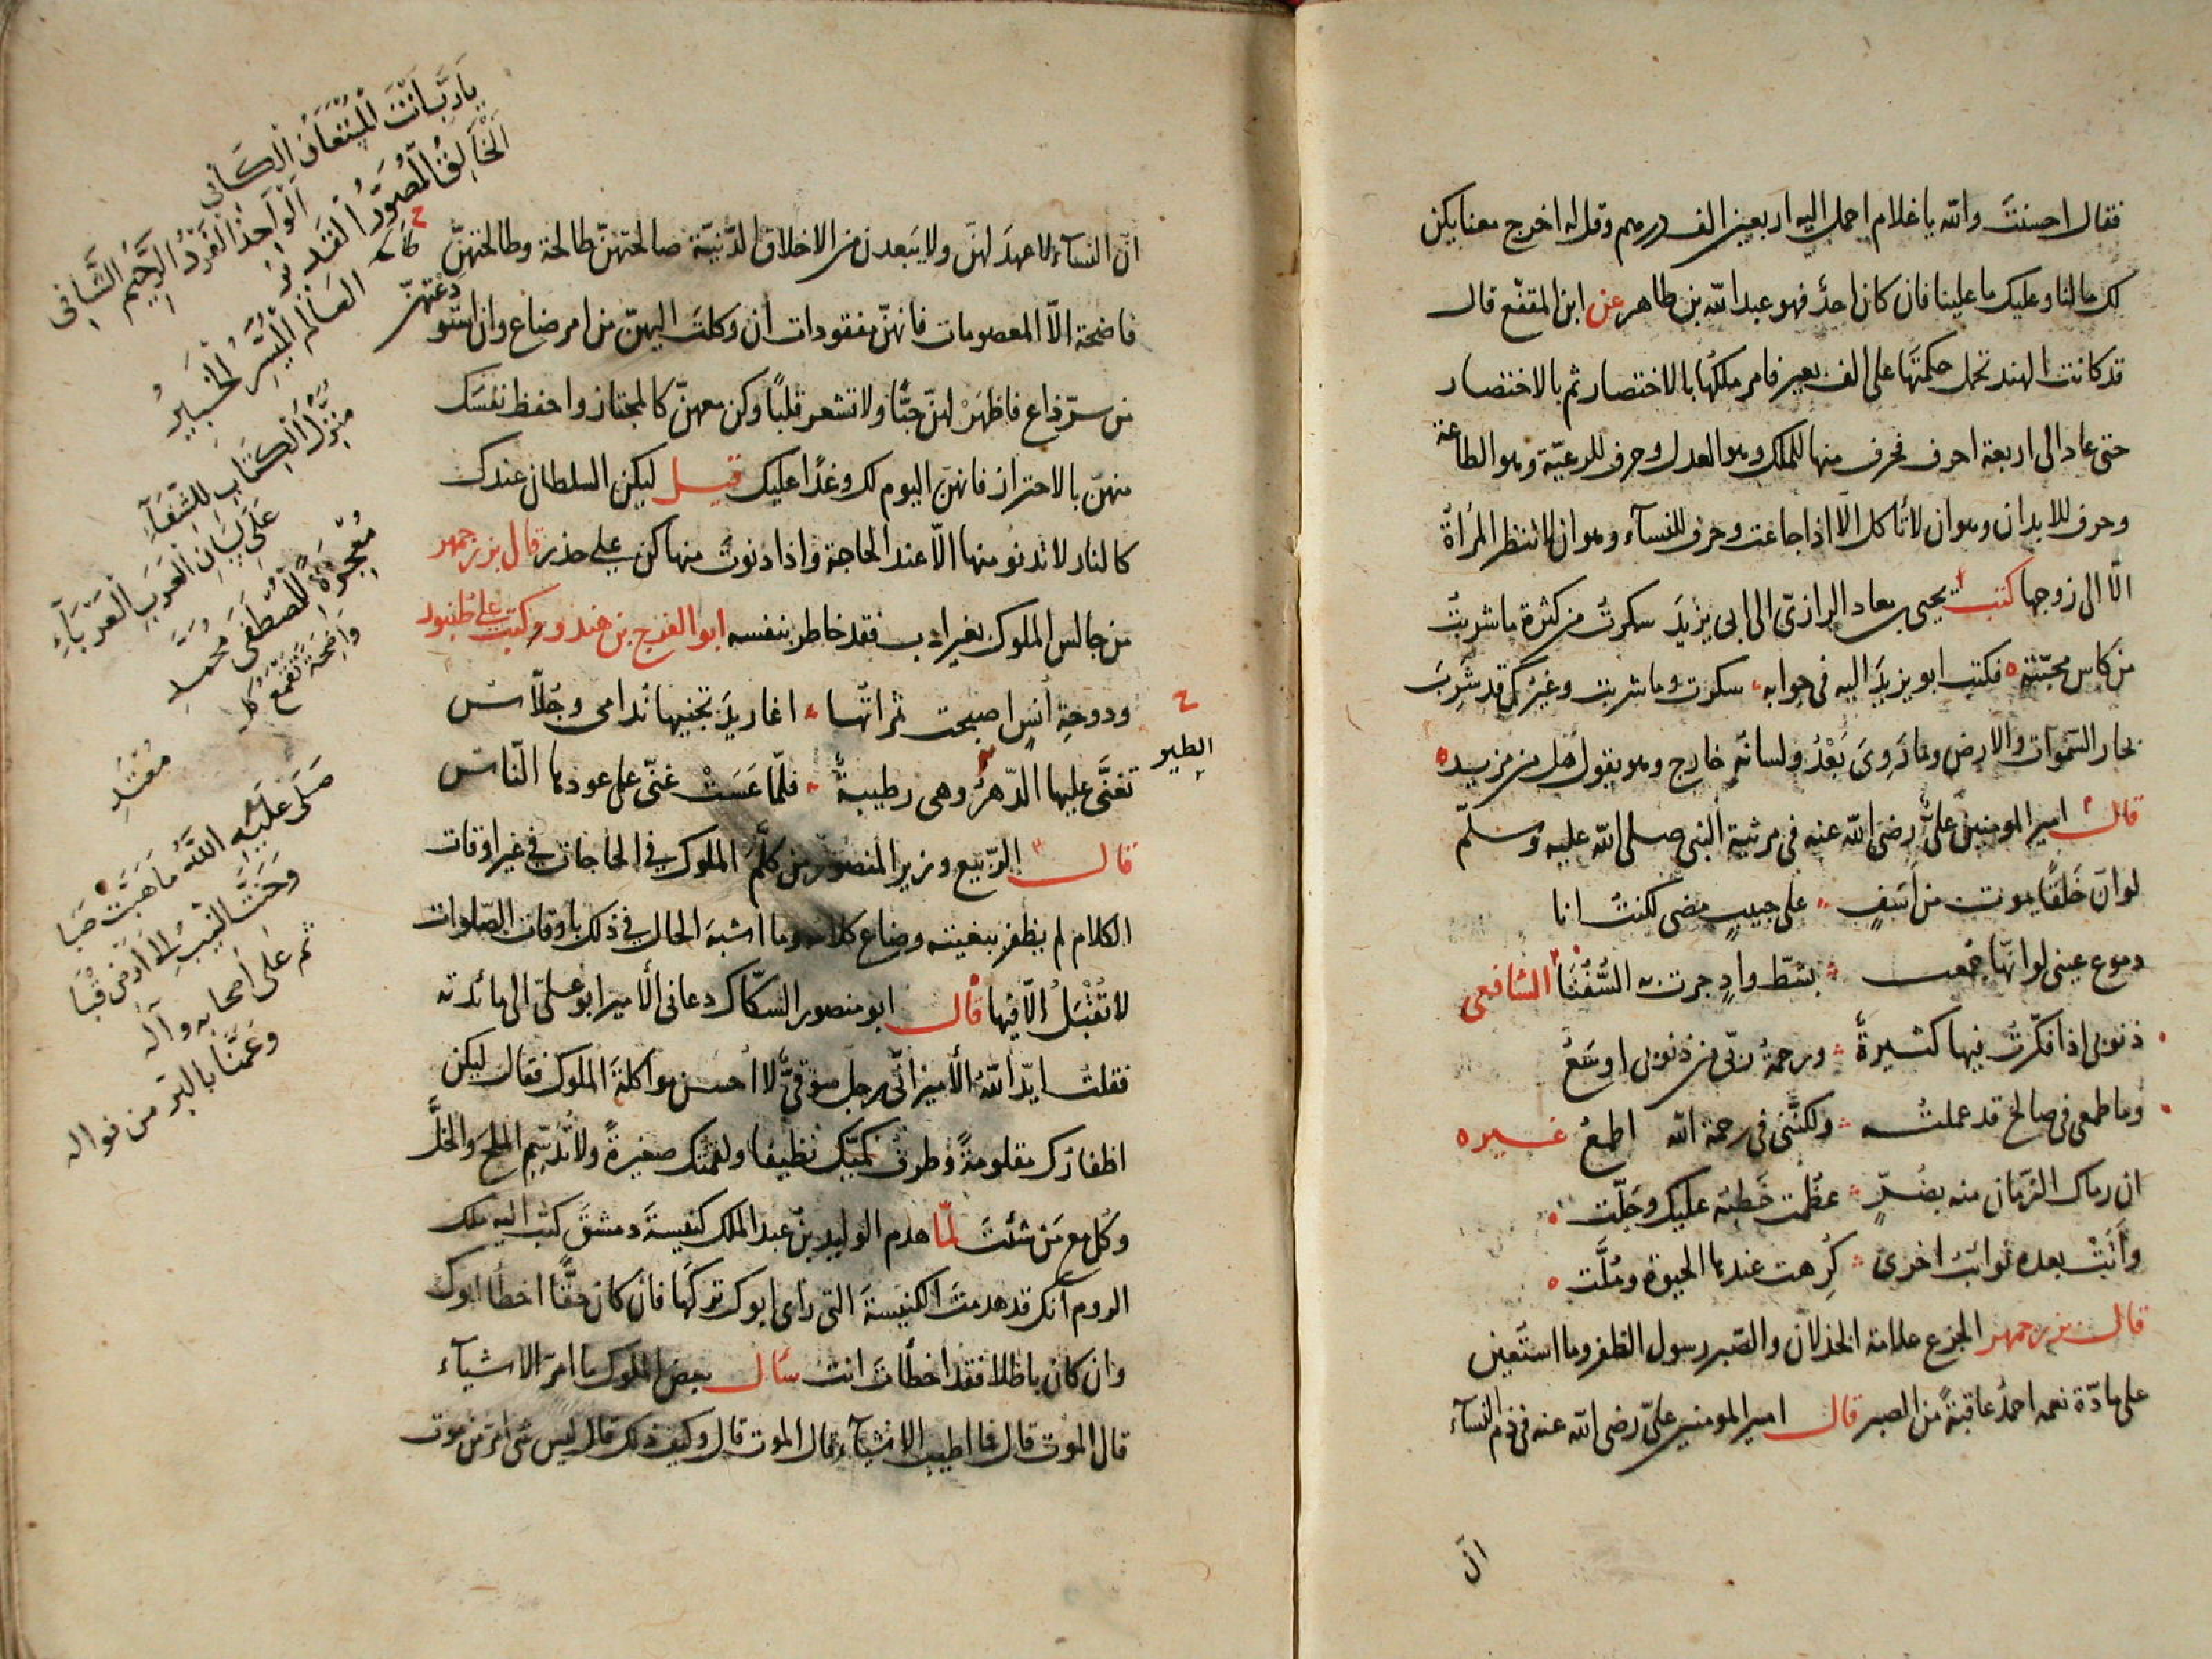 فقال احسنتَ والله يا غلام احمل اليه اربعين الف درهم وقل له اخرج معنا يكن
لك ما لنا وعليك ما علينا فان كان احدٌ فهو عبد الله بن طاهر عن ابن المقفّع قال
قد كانت الهند تحمل حكمتَها على الف بعير فامر ملكُها بالاختصار ثم بالاختصار
حتى عاد الى اربعة احرف فحرف منها للملك وهو العدل وحرف للرعيّة وهو الطاعة
وحرف للابدان وهو ان لا تأكل الّا اذا جاعت وحرف للنسآء وهو ان لا تنظر المرأة
الّا الى زوجها كتب يحيى بن معاد الرازىّ الى ابى يزيدَ سكرتُ من كثرة ما شربتُ
من كاس محبّته فكتب ابو يزيدَ اليه فى جوابه سكرت وما شربت وغيرك قد شَرِبَ
بحار السّموات والارض وما رَوِىَ بَعْدُ ولسانه خارج وهو يقول هل من مزيد
قال امير المومنين علىٌّ رضى الله عنه فى مرثية النبى صلى الله عليه وسلّم
لو انّ خَلقًا يموت من اسَفٍ على حبيبٍ مضى لكنتُ انا
دموع عينى لو انّها جُمعت بشطّ وادٍ جرت به السُّفُنَا الشافعى
ذنوبى اذا فكّرتُ فيها كثيرةٌ ورحمةُ ربّى من ذنوبى اوسَعُ
وما طمعى فى صالح قد عملتُه ولكنَّنى فى رحمة الله اطمعُ غيره
ان رماك الزمان منه بضُرٍّ عظُمت خَطبُه عليك وجَلّت
وأتَتْ بعده نوائب اخرى كُرِهت عندها الحيوة ومُلَّت
قال بزرجمهر الجزع علامة الخذلان والصّبر رسول الظفر وما استعين
على مادّة نعمه احمدُ عاقبةً من الصبر قال امير المومنين علىّ رضى الله عنه فى ذم النسآء
انّ
انّ النسآء لا عهدَ لهنّ ولا يبَعدن من الاخلاق الدّنيّة صالحتهنّ طالحة وطالحتهنّ
فاضحة الاّ المعصومات فانهنّ مفقودات ان وكلتَ اليهنّ من امر ضاع وان استو
دعتهنّ
من سرّ ذاع فاظهَرْ لهنّ حبًّا ولا تشعر قلبًا وكن معهنّ كالمجتاز واحفظ نفسَك
منهنّ بالاحتراز فانهنّ اليوم لك وغدًا عليك قيل ليكن السلطان عندك
كالنار لا تدنو منها الاّ عند الحاجة واذا دنوتَ منها كن على حذر قال بزرجمهر
من جالس الملوك بغير ادب فقد خاطر بنفسه ابو الفرج بن هندو وكتب على طنبور
ودوحةِ انسٍ اصبحت ثمراتُها اغاريدَ تجنيها ندامى وجُلّاس
تغنَّى عليها الدّهرُ وهى رطيبةٌ فلمّا عَسَتْ غنّى على عودها النّاس
الطير
قال الرّبيع وزير المنصور من كلّمَ الملوك فى الحاجات فى غير اوقات
الكلام لم يظفر ببغيته وضاع كلامه وما اشبهَ الحال فى ذلك باوقات الصّلوات
لا تُقْبَلُ الاّ فيها قال ابو منصور السكّاك دعانى الأمير ابو علىّ الى مائدته
فقلت ايّد اللهُ الأمير انّى رجل سوقىٌّ لا احسن مواكلةَ الملوك فقال ليكن
اظفارُك مقلومةً وطرف كمّيك نظيفا ولقمتك صغيرةً ولا تُدسّم الملحَ والخلَّ
وكُل مع مَن شئتَ لمّا هدم الوليد بن عبد الملك كنيسةَ دمشقَ كتب اليه ملك
الروم انّك قد هدمتَ الكنيسةَ التى رَاى ابوك تركَها فان كان حقًّا اخطأ ابوك
وان كان باطلا فقد اخطأتَ انت سأل بعض الملوك ما امرّ الاشيآء
قال الموت قال فما اطيب الاشيآء قال الموت قال وكيف ذلك قال ليس شى امرّ من موت
يَا رَبِّ أَنْتَ الْمُسْتَعَانُ الْكَافِى
اَلْوَاحِدُ الْفَرْدُ الرَّحِيمُ الشَّافِى
اَلْخَالِقُ الْمُصَوِّرُ الْقَدِيرُ
العَالِمُ الْمُيَسِّرُ الْخَبِيرُ
مُنَزِّلُ الْكِتَابِ لِلشِّفَآءِ
عَلَى لِسَانِ الْعَرَبِ الْعَرْبَآءِ
مُعْجِزَةً لِلْمُصْطَفَى مُحَمَّدِ
وَاضِحَةً تَقْمَعُ كُلَّ
مُعْتَدِ
صَلَّى عَلَيْهِ اللهُ مَا هَبَّتْ صَبَا
وَحَنَّتِ النِّيبُ إِلَى أَرْضِ قُبَا
ثم على أصحابه وآله
وعَمَّنا بالبرّ من نواله